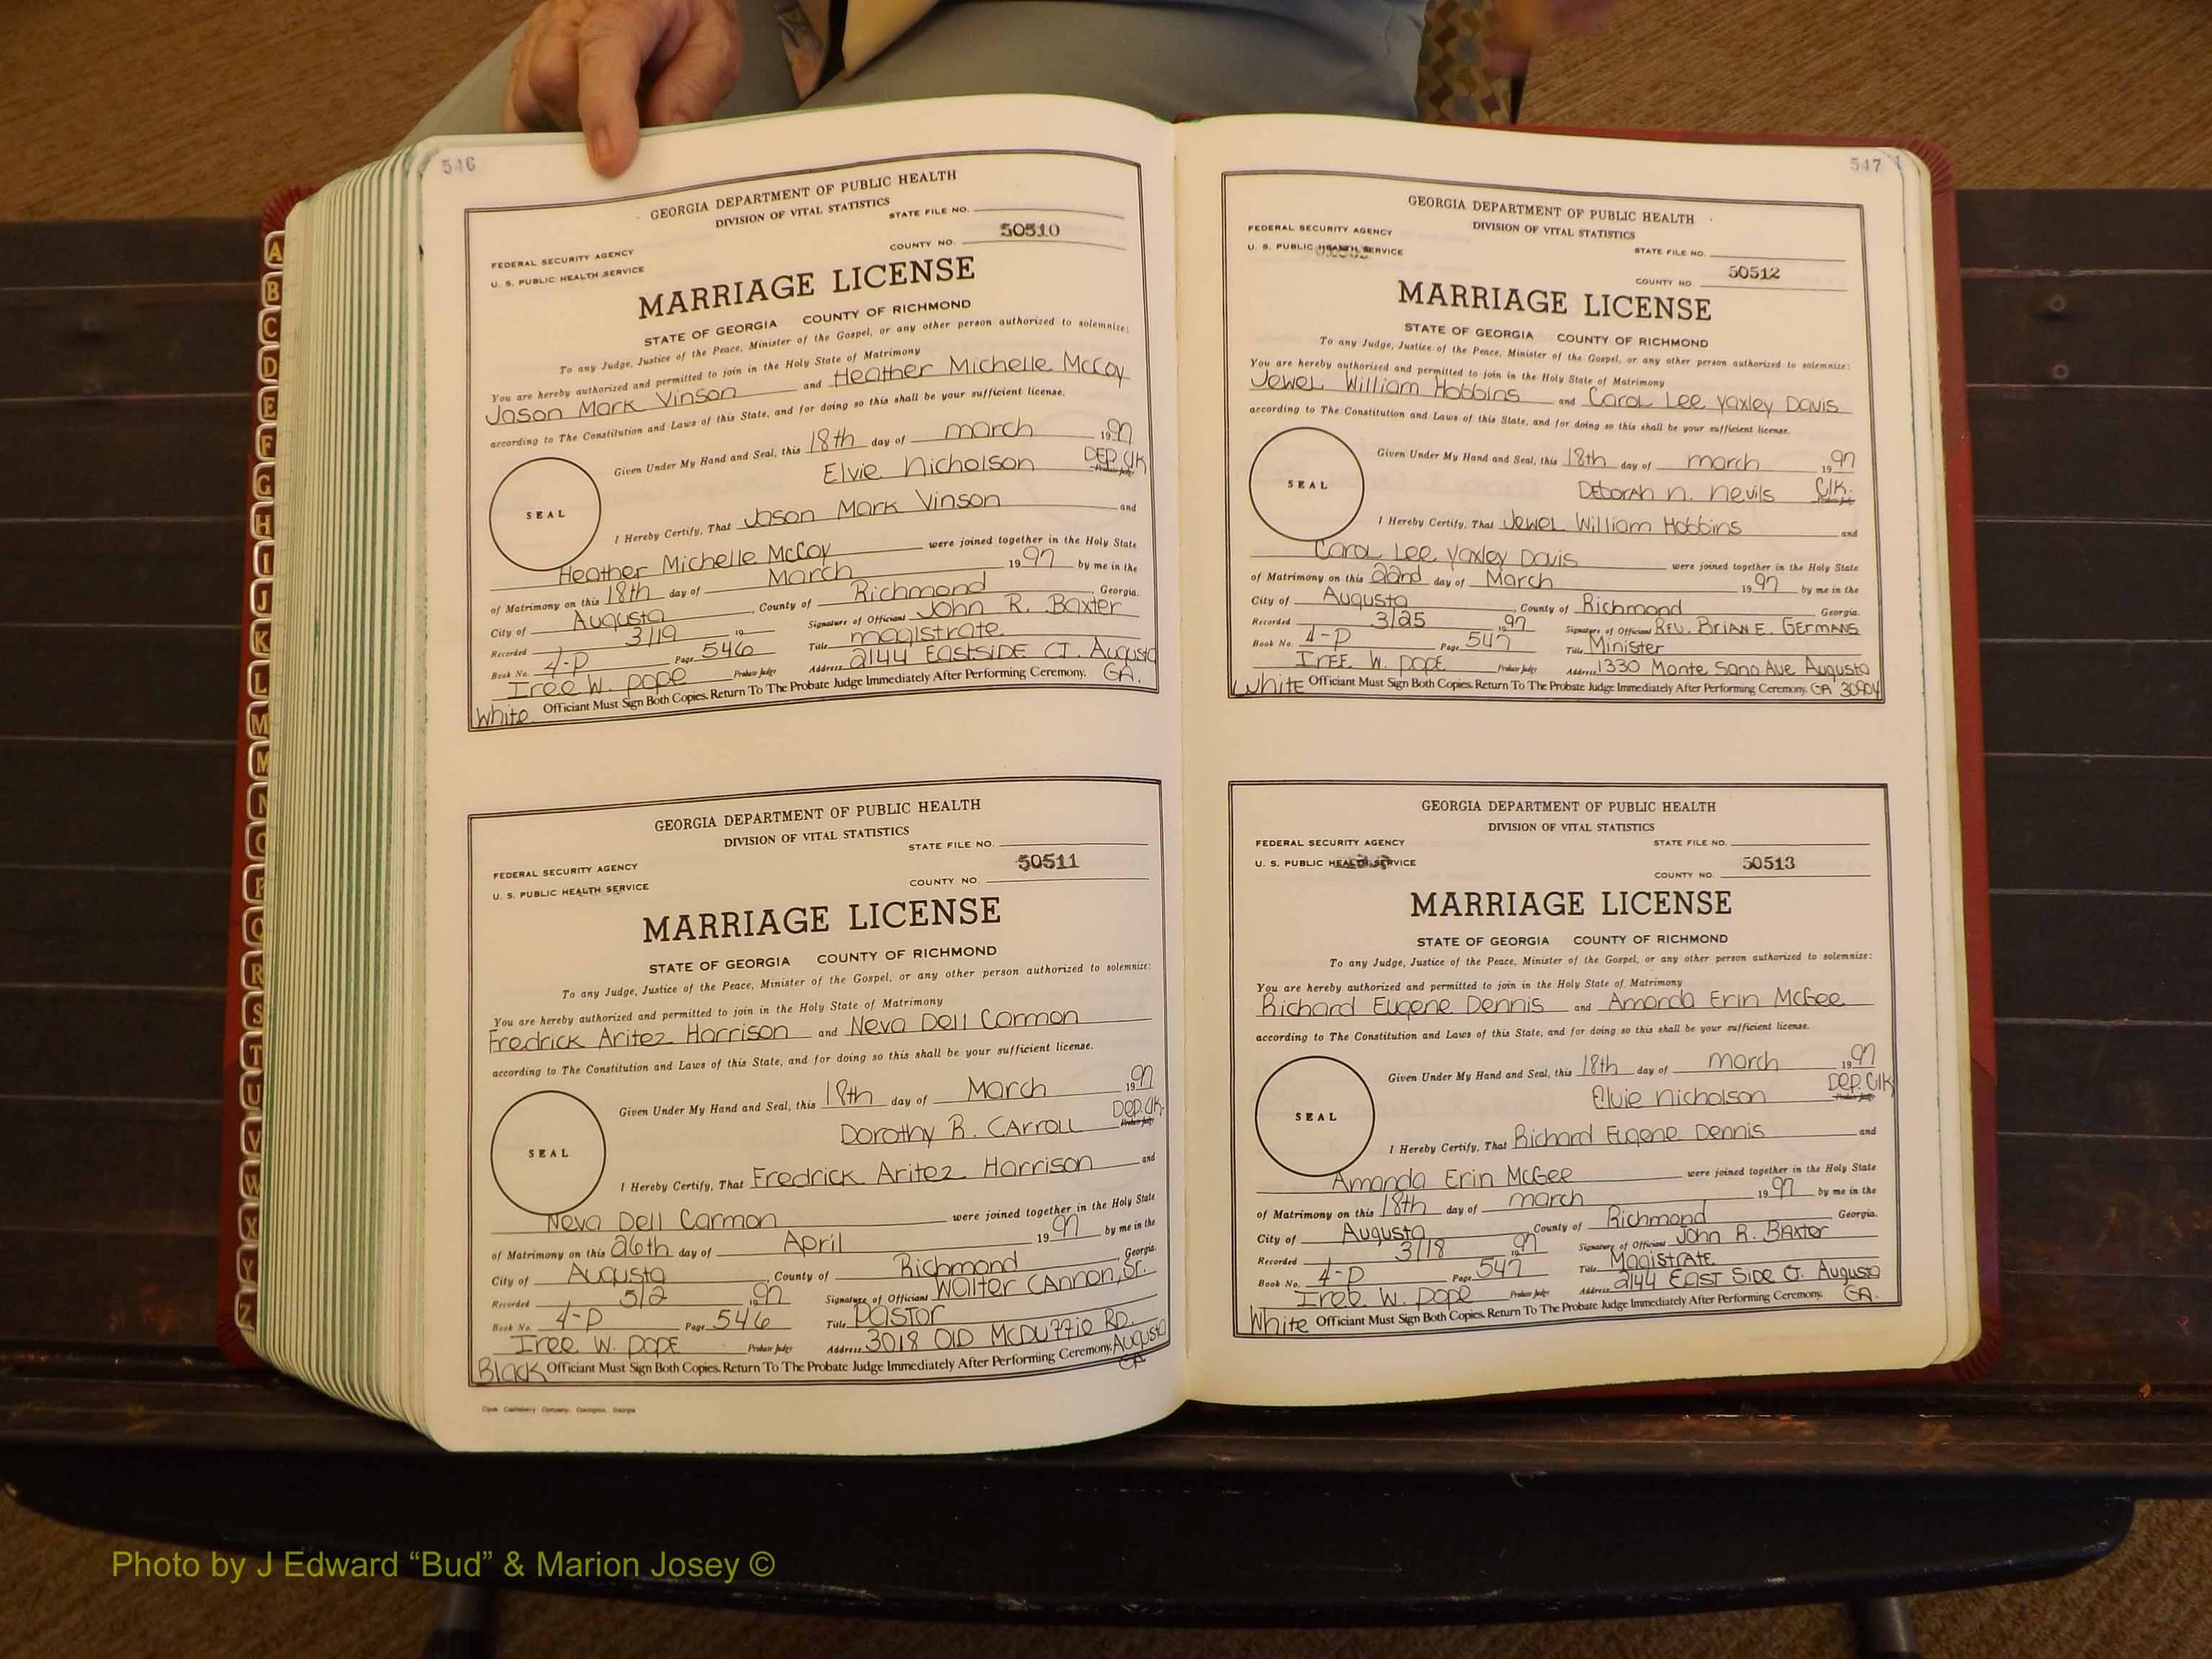 546
GEORGIA DEPARTMENT OF PUBLIC HEALTH
DIVISION OF VITAL STATISTICS
STATE FILE NO.
FEDERAL SECURITY AGENCY
COUNTY NO. 50510
U. S. PUBLIC HEALTH SERVICE
MARRIAGE LICENSE
STATE OF GEORGIA COUNTY OF RICHMOND
To any Judge, Justice of the Peace, Minister of the Gospel, or any other person authorized to solemnize:
You are hereby authorized and permitted to join in the Holy State of Matrimony
Jason Mark Vinson and Heather Michelle McCoy
according to The Constitution and Laws of this State, and for doing so this shall be your sufficient license.
Given Under My Hand and Seal, this 18th day of march 1997
Elvie Nicholson DEP. Clk
Probate Judge
SEAL
I Hereby Certify, That Jason Mark Vinson and
Heather Michelle McCoy were joined together in the Holy State
of Matrimony on this 18th day of March 1997 by me in the
City of Augusta, County of Richmond, Georgia.
Recorded 3/19 19 Signature of Officiant John R. Baxter
Book No. 4-P Page 546 Title magistrate
Iree W. Pope Probate Judge Address 2144 EastSIDE CT. Augusta
GA.
White Officiant Must Sign Both Copies. Return To The Probate Judge Immediately After Performing Ceremony.
GEORGIA DEPARTMENT OF PUBLIC HEALTH
DIVISION OF VITAL STATISTICS
STATE FILE NO.
FEDERAL SECURITY AGENCY
COUNTY NO. 50511
U. S. PUBLIC HEALTH SERVICE
MARRIAGE LICENSE
STATE OF GEORGIA COUNTY OF RICHMOND
To any Judge, Justice of the Peace, Minister of the Gospel, or any other person authorized to solemnize:
You are hereby authorized and permitted to join in the Holy State of Matrimony
Fredrick Aritez Harrison and Neva Dell Carmon
according to The Constitution and Laws of this State, and for doing so this shall be your sufficient license.
Given Under My Hand and Seal, this 18th day of March 1997
Dorothy R. Carroll Dep. Clk.
Probate Judge
SEAL
I Hereby Certify, That Fredrick Aritez Harrison and
Neva Dell Carmon were joined together in the Holy State
of Matrimony on this 26th day of April 1997 by me in the
City of Augusta, County of Richmond, Georgia.
Recorded 5/2 1997 Signature of Officiant Walter Cannon, Sr.
Book No. 4-P Page 546 Title Pastor
Iree W. Pope Probate Judge Address 3018 Old McDuffie RD.
Augusta GA
Black Officiant Must Sign Both Copies. Return To The Probate Judge Immediately After Performing Ceremony.
547
GEORGIA DEPARTMENT OF PUBLIC HEALTH
DIVISION OF VITAL STATISTICS
FEDERAL SECURITY AGENCY
STATE FILE NO.
U. S. PUBLIC HEALTH SERVICE
COUNTY NO. 50512
MARRIAGE LICENSE
STATE OF GEORGIA COUNTY OF RICHMOND
To any Judge, Justice of the Peace, Minister of the Gospel, or any other person authorized to solemnize:
You are hereby authorized and permitted to join in the Holy State of Matrimony
Jewel William Hobbins and Carol Lee Yaxley Davis
according to The Constitution and Laws of this State, and for doing so this shall be your sufficient license.
Given Under My Hand and Seal, this 18th day of march 1997
Deborah N. Nevils Clk.
Probate Judge
SEAL
I Hereby Certify, That Jewel William Hobbins and
Carol Lee Yaxley Davis were joined together in the Holy State
of Matrimony on this 22nd day of March 1997 by me in the
City of Augusta, County of Richmond Georgia.
Recorded 3/25 1997 Signature of Officiant Rev. Brian E. Germans
Book No. 4-P Page 547 Title Minister
Iree W. Pope Probate Judge Address 1330 Monte Sano Ave Augusta
White Officiant Must Sign Both Copies. Return To The Probate Judge Immediately After Performing Ceremony. GA 30904
GEORGIA DEPARTMENT OF PUBLIC HEALTH
DIVISION OF VITAL STATISTICS
FEDERAL SECURITY AGENCY
STATE FILE NO.
U. S. PUBLIC HEALTH SERVICE
COUNTY NO. 50513
MARRIAGE LICENSE
STATE OF GEORGIA COUNTY OF RICHMOND
To any Judge, Justice of the Peace, Minister of the Gospel, or any other person authorized to solemnize:
You are hereby authorized and permitted to join in the Holy State of Matrimony
Richard Eugene Dennis and Amanda Erin McGee
according to The Constitution and Laws of this State, and for doing so this shall be your sufficient license.
Given Under My Hand and Seal, this 18th day of march 1997
Elvie Nicholson Dep. Clk
Probate Judge
SEAL
I Hereby Certify, That Richard Eugene Dennis and
Amanda Erin McGee were joined together in the Holy State
of Matrimony on this 18th day of march 1997 by me in the
City of Augusta County of Richmond Georgia.
Recorded 3/18 1997 Signature of Officiant John R. Baxter
Book No. 4-P Page 547 Title Magistrate
Iree W. Pope Probate Judge Address 2144 East Side Ct. Augusta
GA.
White Officiant Must Sign Both Copies. Return To The Probate Judge Immediately After Performing Ceremony.
A
B
C
D
E
F
G
H
I
J
K
L
M
M
N
O
P
Q
R
S
T
U
V
W
X
Y
Z
Photo by J Edward “Bud” & Marion Josey ©